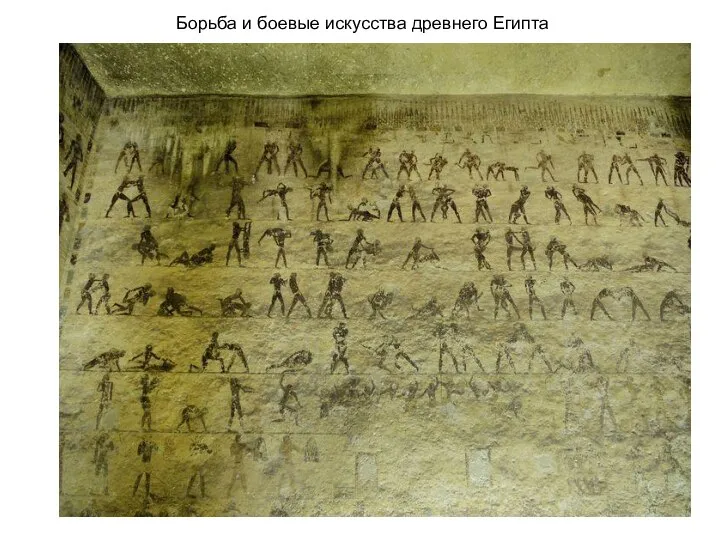 Борьба и боевые искусства древнего Египта